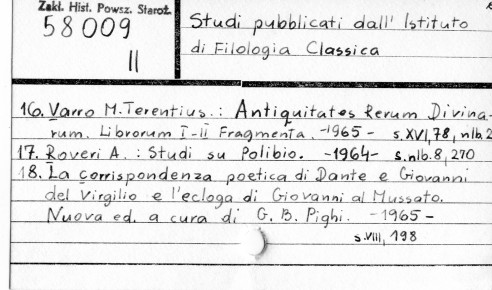 Zakł. Hist. Powsz. Staroż.
58009
II
Studi pubblicati dall' Istituto
di Filologia Classica
16. Varro M. Terentius.: Antiquitates Rerum Divina-
rum. Librorum I-II Fragmenta. -1965- s. XVI, 78, nlb. 2
17. Roveri A.: Studi su Polibio. -1964- s. nlb. 8, 270
18. La corrispondenza poetica di Dante e Giovanni
del Virgilio e l'ecloga di Giovanni al Mussato.
Nuova ed. a cura di G. B. Pighi. -1965-
s. VIII, 198